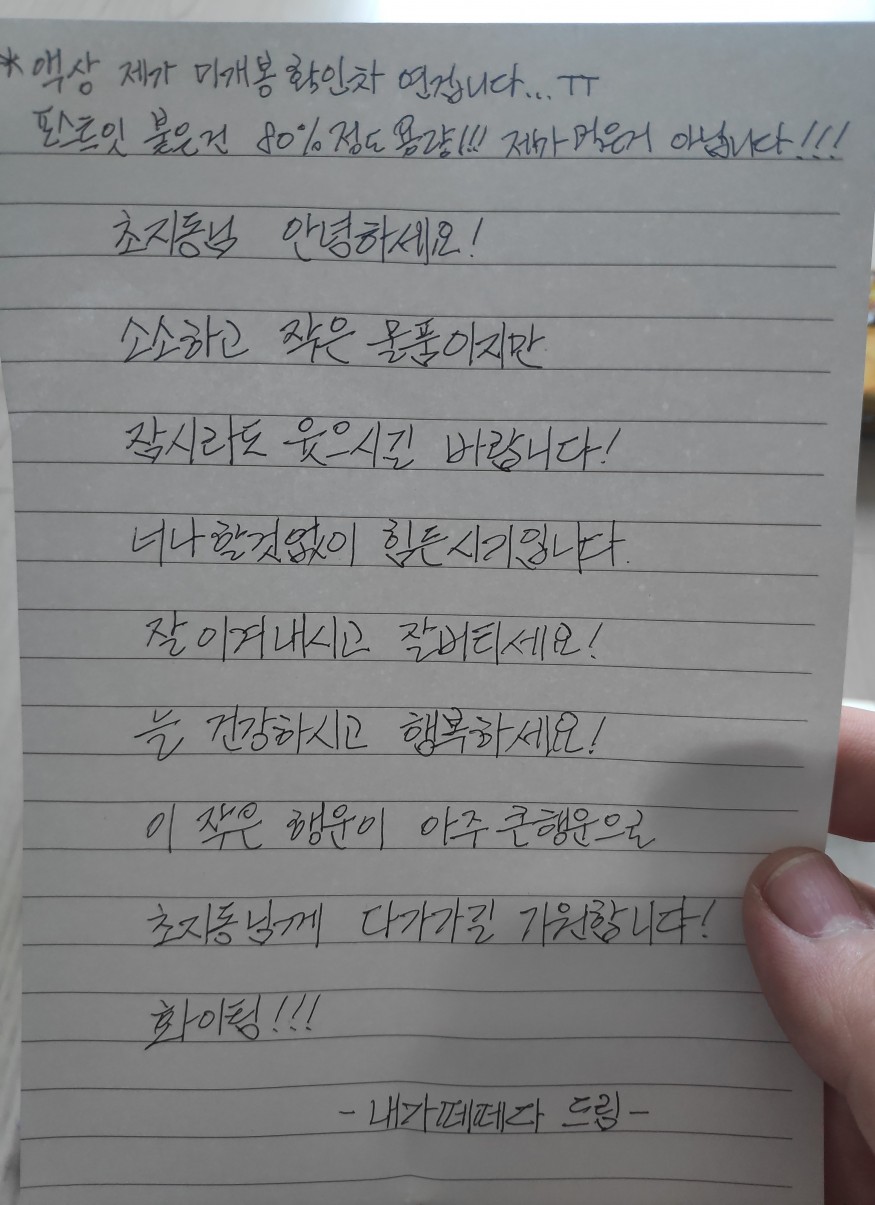 * 액상 제가 미개봉 확인차 연겁니다... ㅠ
포스트잇 붙은건 80%정도 용량!!! 제가 먹은거 아닙니다!!!
초지동님 안녕하세요!
소소하고 작은 물품이지만
잠시라도 웃으시길 바랍니다!
너나 할것없이 힘든시기입니다.
잘 이겨내시고 잘버티세요!
늘 건강하시고 행복하세요!
이 작은 행운이 아주 큰행운으로
초지동님께 다가가길 기원합니다!
화이팅!!!
- 내가떼떼다 드림 -